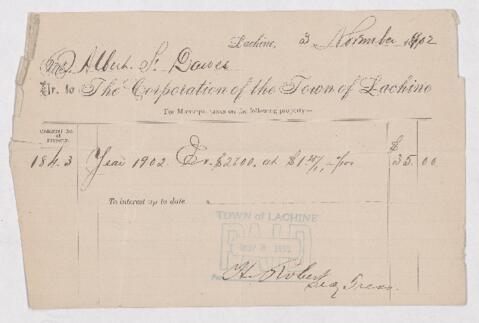 Lachine, 3 November 1902
Albert S. Dawes
Dr. to The Corporation of the Town of Lachine
For Municipal taxes on the following property:—
Cadastral No. of Property. $
184.3 Year 1902 $2800. at 35.00
To interest up to date
TOWN of LACHINE
PAID
H. Robert
Secy Treas.